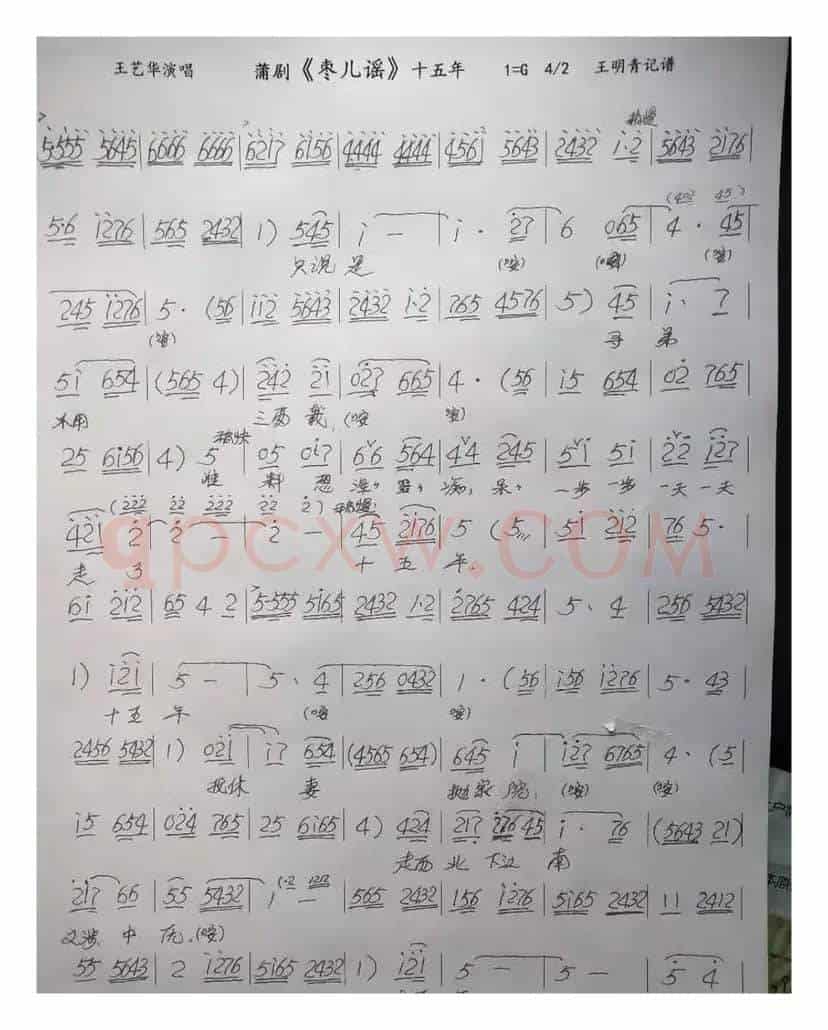 王艺华演唱 蒲剧《枣儿谣》十五年 1=G 4/2 王明青记谱
稍慢
5555 5645 | 6666 6666 | 6217 6156 | 4444 4444 | 4561 5643 | 2432 1·2 | 5643 2176
5·6 1276 | 565 2432 | 1) 545 | i — | i · 27 | 6 065 | 4 · 45
只说是 (咹) (咹)
245 1276 | 5 · (56 | 112 5643 | 2432 1·2 | 765 4576 | 5) 45 | i · 7
(咹) 哥弟
51 654 | (565 4) | 242 21 | 027 665 | 4 · (56 | 15 654 | 02 765
不用 三两载 (咹) (咹)
稍快
25 6156 | 4) 5 | 05 017 | 66 564 | 44 245 | 51 51 | 22 127
谁料想 一步一步一天一天
(222 22 222 22 2) 稍慢
421 2 | 2 — | 2 — | 45 2176 | 5 (5 | 51 212 | 76 5·
走了 十五年
qpcxw.COM
61 212 | 65 4 2 | 5·555 5165 | 2432 1·2 | 2765 424 | 5 · 4 | 256 5432
1) 121 | 5 — | 5 · 4 | 256 0432 | 1 · (56 | 156 1276 | 5 · 43
十五年 (咹) (咹)
2456 5432 | 1) 021 | 17 654 | (4565 654) | 645 i | 127 6765 | 4 · (5
我休妻 抛家院 (咹) (咹)
15 654 | 024 765 | 25 6165 | 4) 424 | 217 276 45 | i · 76 | (5643 21)
走西北下江南
217 66 | 55 5432 | 1 — | 565 2432 | 156 1276 | 5165 2432 | 11 2412
又涉中庑 (咹)
55 5643 | 2 1276 | 5165 2432 | 1) 121 | 5 — | 5 — | 5 4